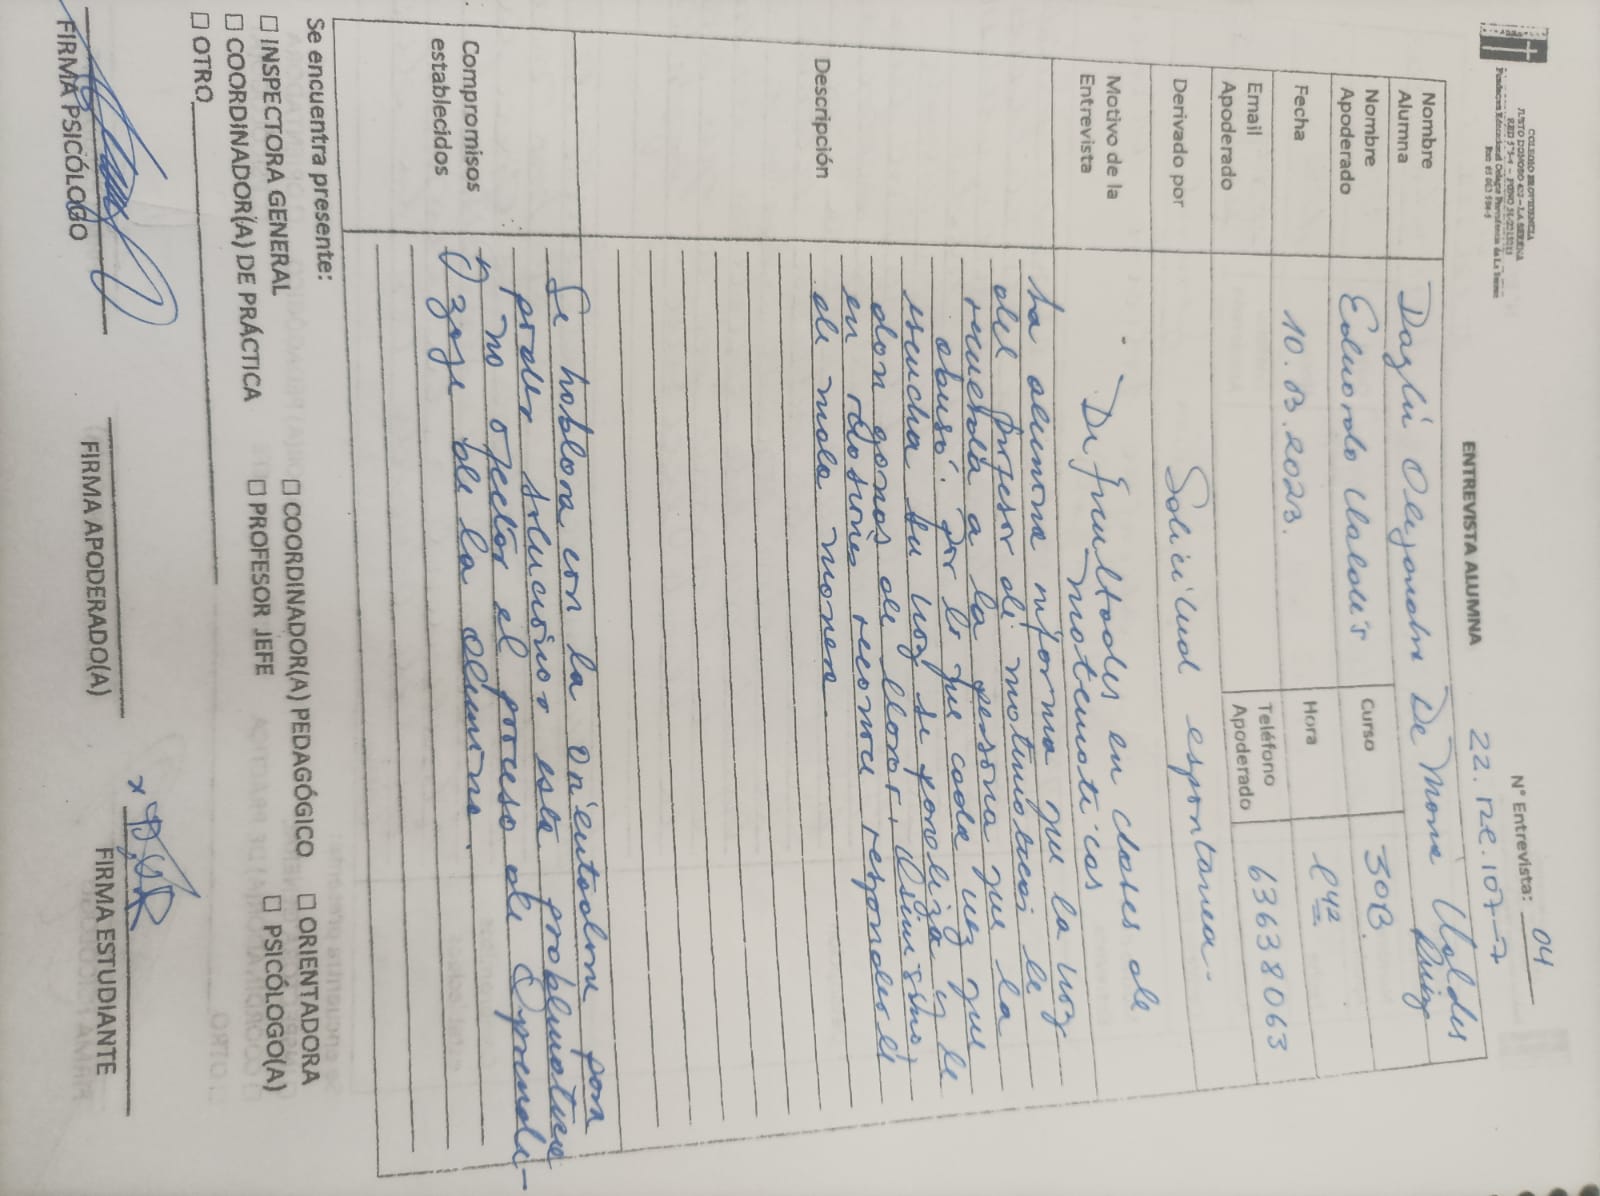 COLEGIO PROVIDENCIA
JUSTO DONOSO 420 – LA SERENA
Fundación Educacional Colegio Providencia de La Serena
N° Entrevista: 04
ENTREVISTA ALUMNA
Nombre Alumna
De Mora Valdes
Nombre Apoderado
Eduardo Valdés
Curso
30B.
Fecha
10.03.2023.
Hora
Email Apoderado
Teléfono Apoderado
63638063
Derivado por
Solicitud espontanea.
Motivo de la Entrevista
Dificultades en clases de
matematicas
Descripción
La alumna informa que la voz
del profesor de matematicas le
recuerda a la persona que la
abusó. por lo que cada vez que
escucha su voz se paraliza y le
dan ganas de llorar, asimismo,
en ocasiones reconoce responderle
de mala manera.
Compromisos establecidos
Se hablara con la orientadora para
poder solucionar esta problematica
y no afectar el proceso de aprendi-
zaje de la alumna.
Se encuentra presente:
☐ INSPECTORA GENERAL ☐ COORDINADOR(A) PEDAGÓGICO ☐ ORIENTADORA
☐ COORDINADOR(A) DE PRÁCTICA ☐ PROFESOR JEFE ☐ PSICÓLOGO(A)
☐ OTRO
FIRMA PSICÓLOGO FIRMA APODERADO(A) FIRMA ESTUDIANTE